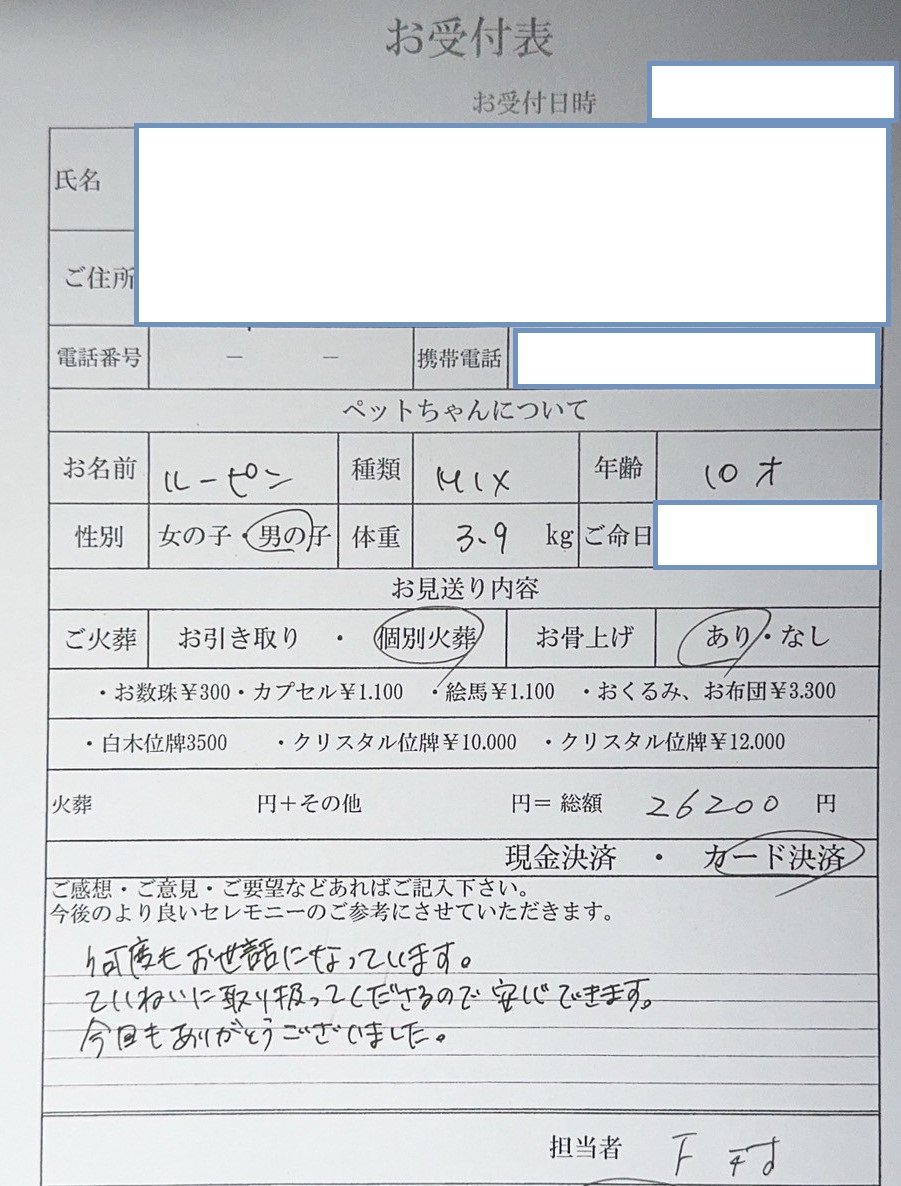 お受付表
お受付日時
氏名
ご住所
電話番号 － － 携帯電話
ペットちゃんについて
お名前 ルーピン 種類 MIX 年齢 10才
性別 女の子・男の子 体重 3.9 kg ご命日
お見送り内容
ご火葬 お引き取り ・ 個別火葬 お骨上げ あり・なし
・お数珠￥300・カプセル￥1.100 ・絵馬￥1.100 ・おくるみ、お布団￥3.300
・白木位牌3500 ・クリスタル位牌￥10.000 ・クリスタル位牌￥12.000
火葬 円＋その他 円＝ 総額 26200 円
現金決済 ・ カード決済
ご感想・ご意見・ご要望などあればご記入下さい。
今後のより良いセレモニーのご参考にさせていただきます。
何度もお世話になっています。
ていねいに取り扱ってくださるので安心できます。
今回もありがとうございました。
担当者 下村